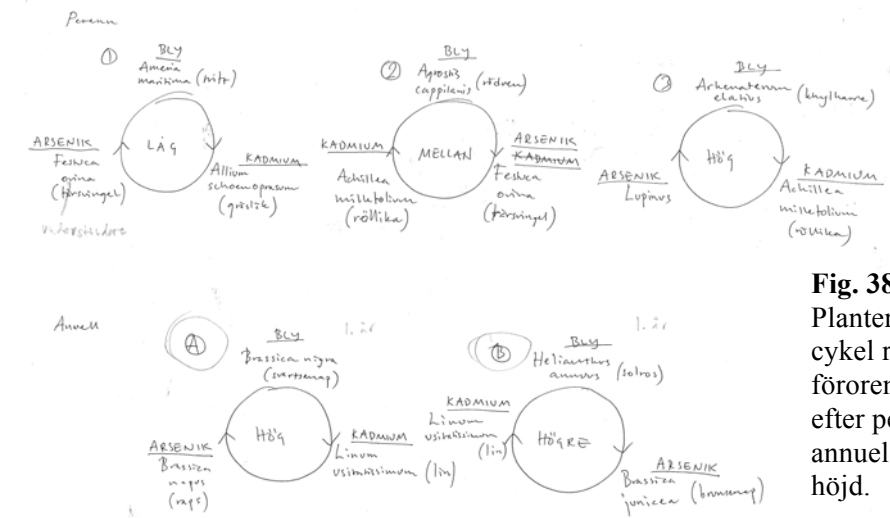 Perenn
①
BLY
Ameria
maritima (trift)
ARSENIK
Festuca
ovina
(fårsvingel)
LÅG
KADMIUM
Allium
schoenoprasum
(gräslök)
②
BLY
Agrostis
cappilaris (rödven)
KADMIUM
Achillea
millefolium
(röllika)
MELLAN
ARSENIK
KADMIUM
Festuca
ovina
(fårsvingel)
③
BLY
Arhenaterum
elatius (knylhavre)
ARSENIK
Lupinus
HÖG
KADMIUM
Achillea
millefolium
(röllika)
Annuell
Ⓐ
1. år
BLY
Brassica nigra
(svartsenap)
ARSENIK
Brassica
napus
(raps)
HÖG
KADMIUM
Linum
usitatissimum (lin)
Ⓑ
1. år
BLY
Helianthus
annuus (solros)
KADMIUM
Linum
usitatissimum
(lin)
HÖGRE
ARSENIK
Brassica
juncea (brunsenap)
Fig. 38
Planter
cykel
föroren
efter pe
annuel
höjd.